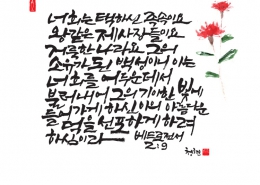 너희는 택하신 족속이요
왕같은 제사장들이요
거룩한 나라요 그의
소유가 된 백성이니 이는
너희를 어두운데서
불러내어 그의 기이한 빛에
들어가게 하신이의 아름다운
덕을 선포하게 하려
하심이라
베드로전서
2:9